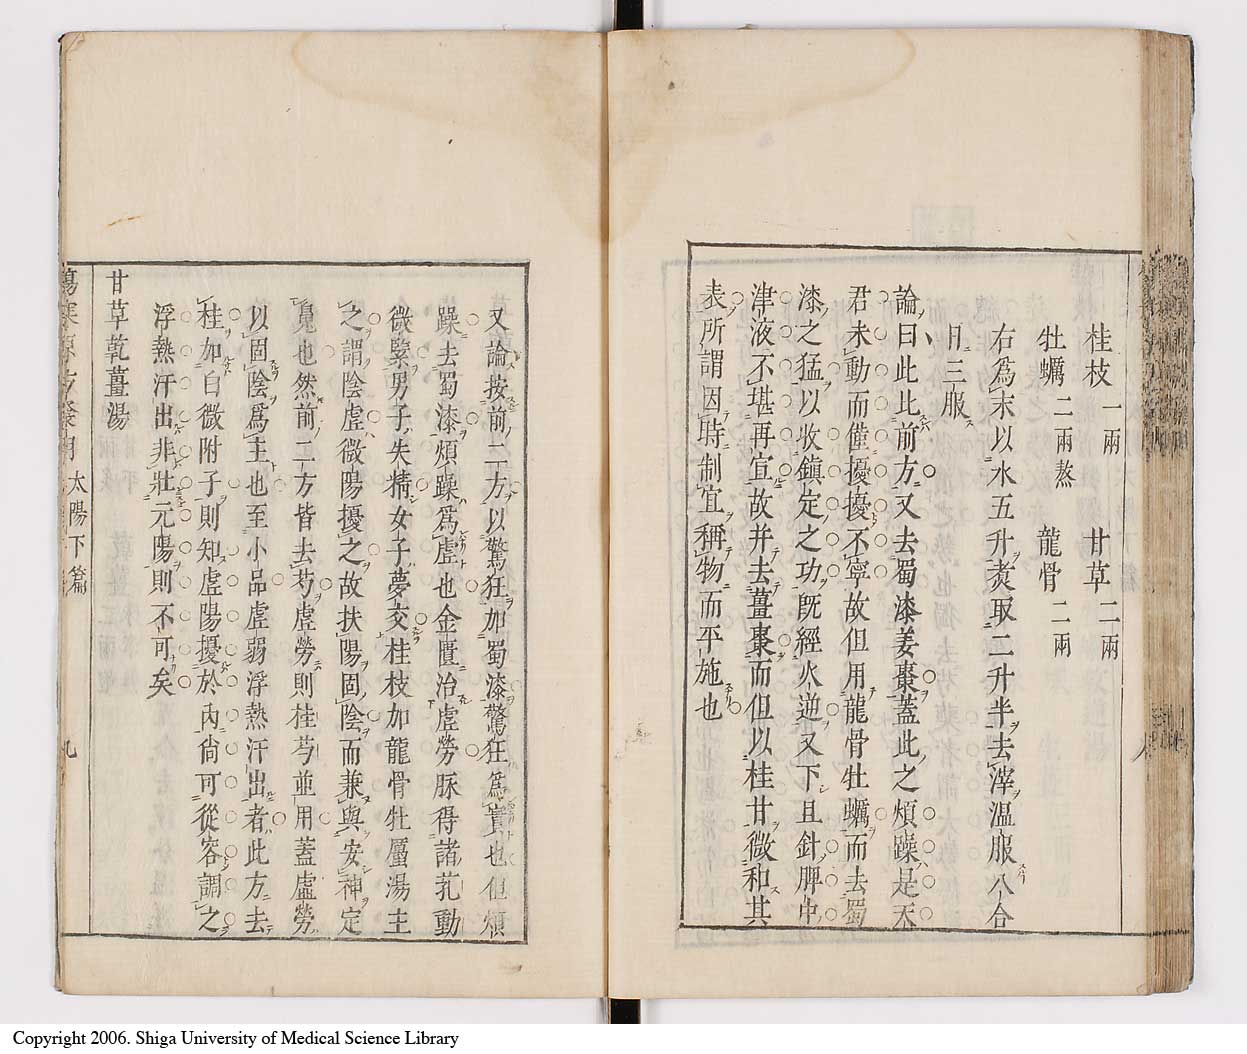 桂枝 一兩 甘草 二兩
牡蠣 二兩熬 龍骨 二兩
右爲末以水五升煮取二升半去滓溫服八合
日三服
論曰此比前方又去蜀漆姜棗蓋此之煩躁是天
君未動而僅擾擾不寧故但用龍骨牡蠣而去蜀
漆之猛以收鎮定之功旣經火逆又下且針脾中
津液不堪再宣故并去薑棗而但以桂甘微和其
表所謂因時制宜稱物而平施也
又論按前二方以驚狂加蜀漆驚狂爲實也但煩
躁去蜀漆煩躁爲虛也金匱治虛勞脉得諸芤動
微緊男子失精女子夢交桂枝加龍骨牡厲湯主
之謂陰虛微陽擾之故扶陽固陰而兼與安神定
鬼也然前二方皆去芍虛勞則桂芍並用蓋虛勞
以固陰爲主也至小品虛弱浮熱汗出者此方去
桂加白微附子則知虛陽擾於內尙可從容調之
浮熱汗出非壯元陽則不可矣
甘草乾薑湯
太陽下篇
九
Copyright 2006. Shiga University of Medical Science Library